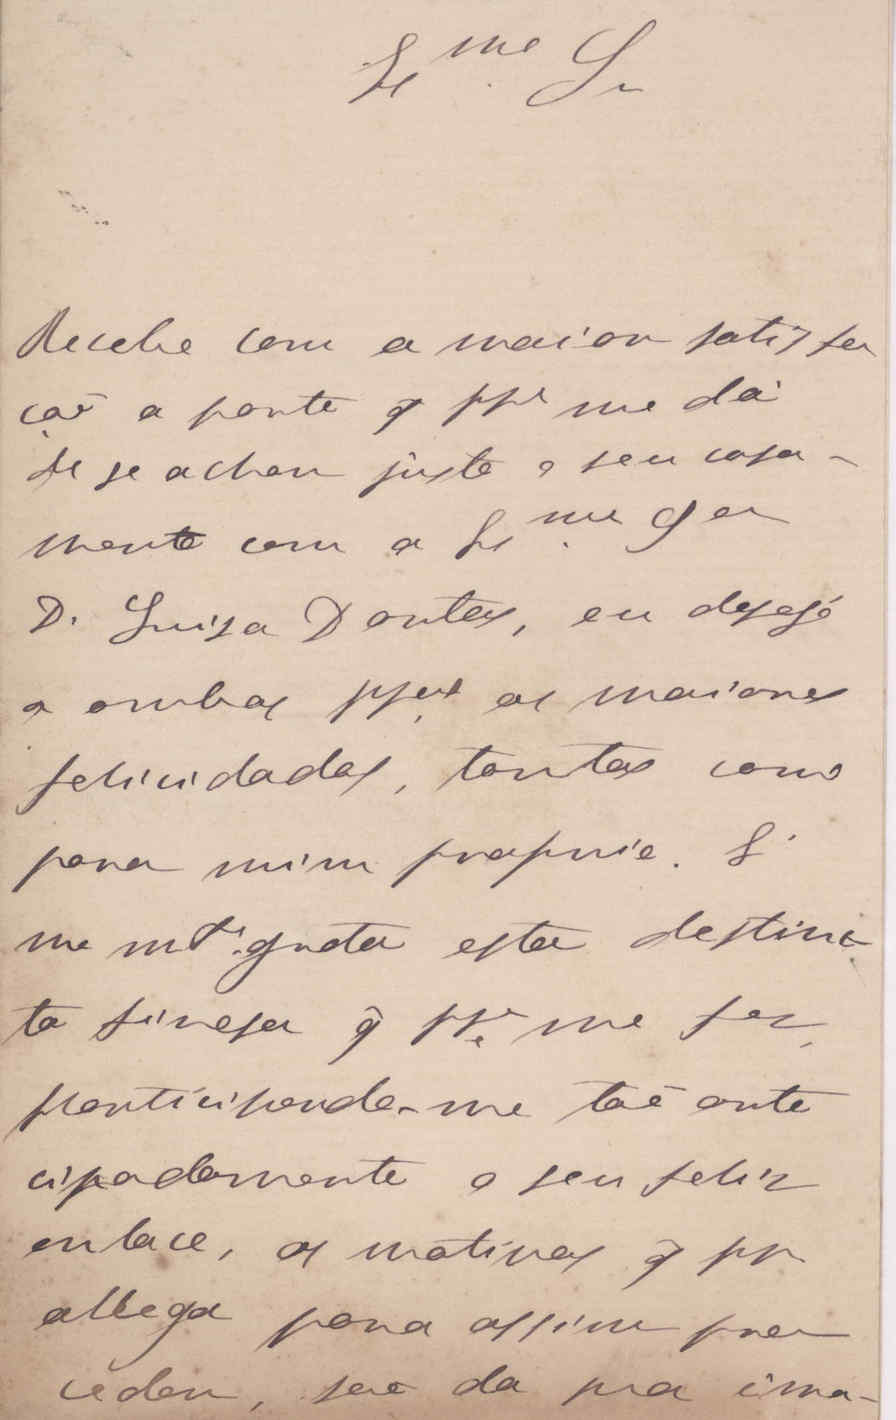 Ex.me Sr
Recebe com a maior satisfa
çaõ a parte q̃ me dá
de se achar justo o seu casa-
mento com a Ex.ma Sra
D. Luiza Dantas, eu desejo
a ambos as maiores
felicidades, tantas como
para mim proprio. É
me mto. grata esta destinc
ta fineza q̃ me faz,
participando-me taõ ante
cipadamente o seu feliz
enlace, os motivos q̃
allega para assim pro
ceder, saõ da